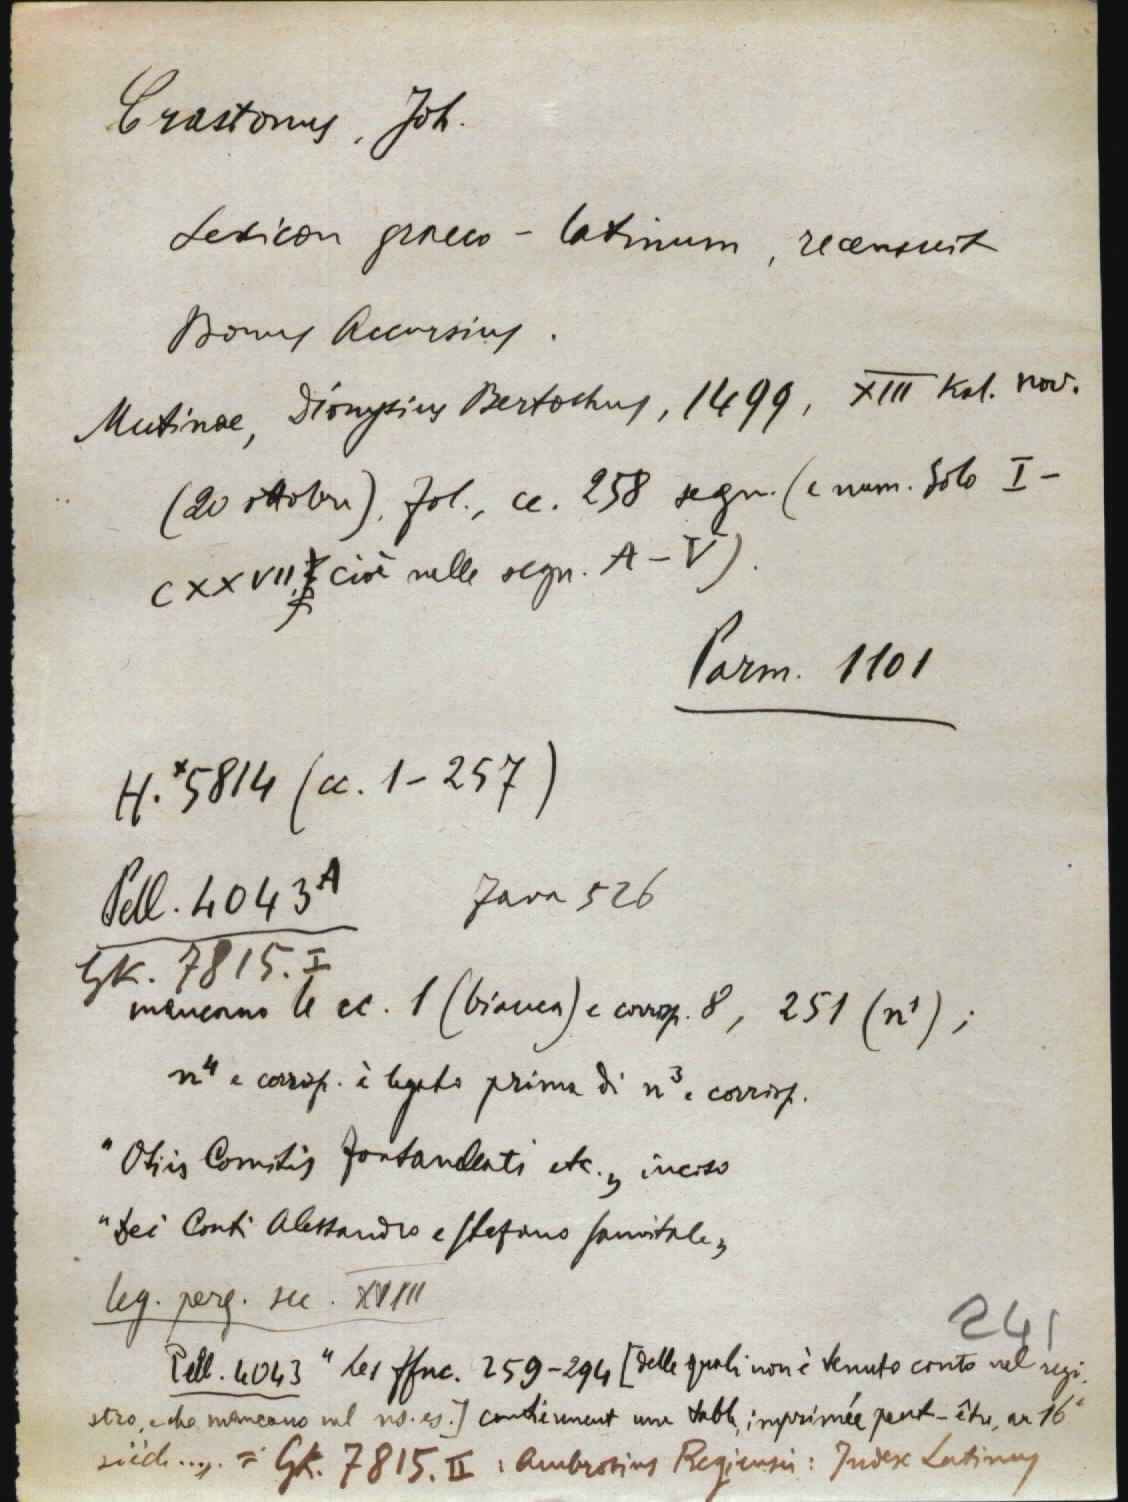 Crastonus, Joh.
Lexicon graeco-latinum, recensuit
Bonus Accursius.
Mutinae, Dionysius Bertochus, 1499, XIII Kal. nov.
(20 ottobre), fol., cc. 258 segn. (e num. solo I-
CXXVII, cioè nelle segn. A-V).
Parm. 1101
H.*5814 (cc. 1-257)
Pell. 4043A
Fava 526
GK. 7815.I
mancano le cc. 1 (bianca) e corrisp. 8, 251 (n1);
n4 e corrisp. è legato prima di n3 e corrisp.
"Otiis Comitis Fontanellati etc.„ inciso
"Dei Conti Alessandro e Stefano Sanvitale„
leg. perg. sec. XVIII
241
Pell. 4043 "Les ffnc. 259-294 [delle quali non è tenuto conto nel regi-
stro, e che mancano nel ns. es.] contiennent une table, imprimée peut-être, au 16e
siècle...„ = GK. 7815.II : Ambrosius Regiensis: Index Latinus